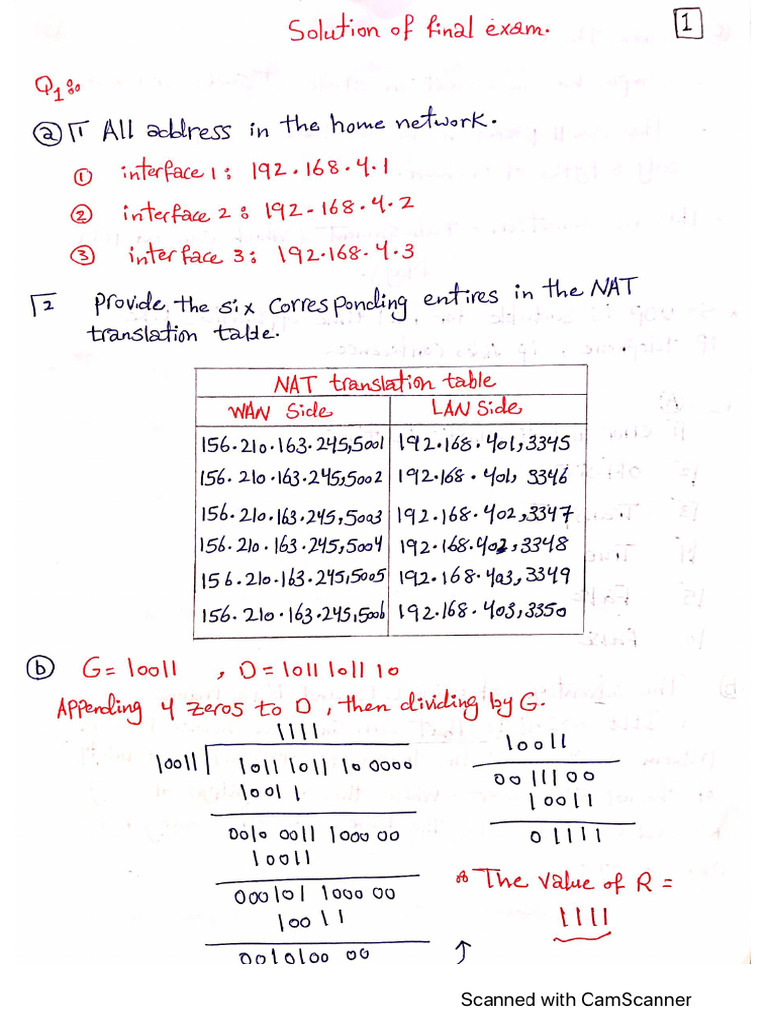 Solution of final exam.
1
Q1:
a 1 All address in the home network.
① interface 1: 192.168.4.1
② interface 2: 192.168.4.2
③ interface 3: 192.168.4.3
2 Provide the six corresponding entires in the NAT
translation table.
NAT translation table
WAN Side LAN Side
156.210.163.245,5001 192.168.401,3345
156.210.163.245,5002 192.168.401, 3346
156.210.163.245,5003 192.168.402,3347
156.210.163.245,5004 192.168.402,3348
156.210.163.245,5005 192.168.403,3349
156.210.163.245,5006 192.168.403,3350
b G= 10011 , D=1011 1011 10
Appending 4 zeros to D, then dividing by G.
1111
10011 1011 1011 10 0000
1001 1
0010 0011 1000 00
10011
000101 1000 00
100 11
0010100 00
↑
10011
00 111 00
10011
0 1111
* The value of R =
1111
Scanned with CamScanner